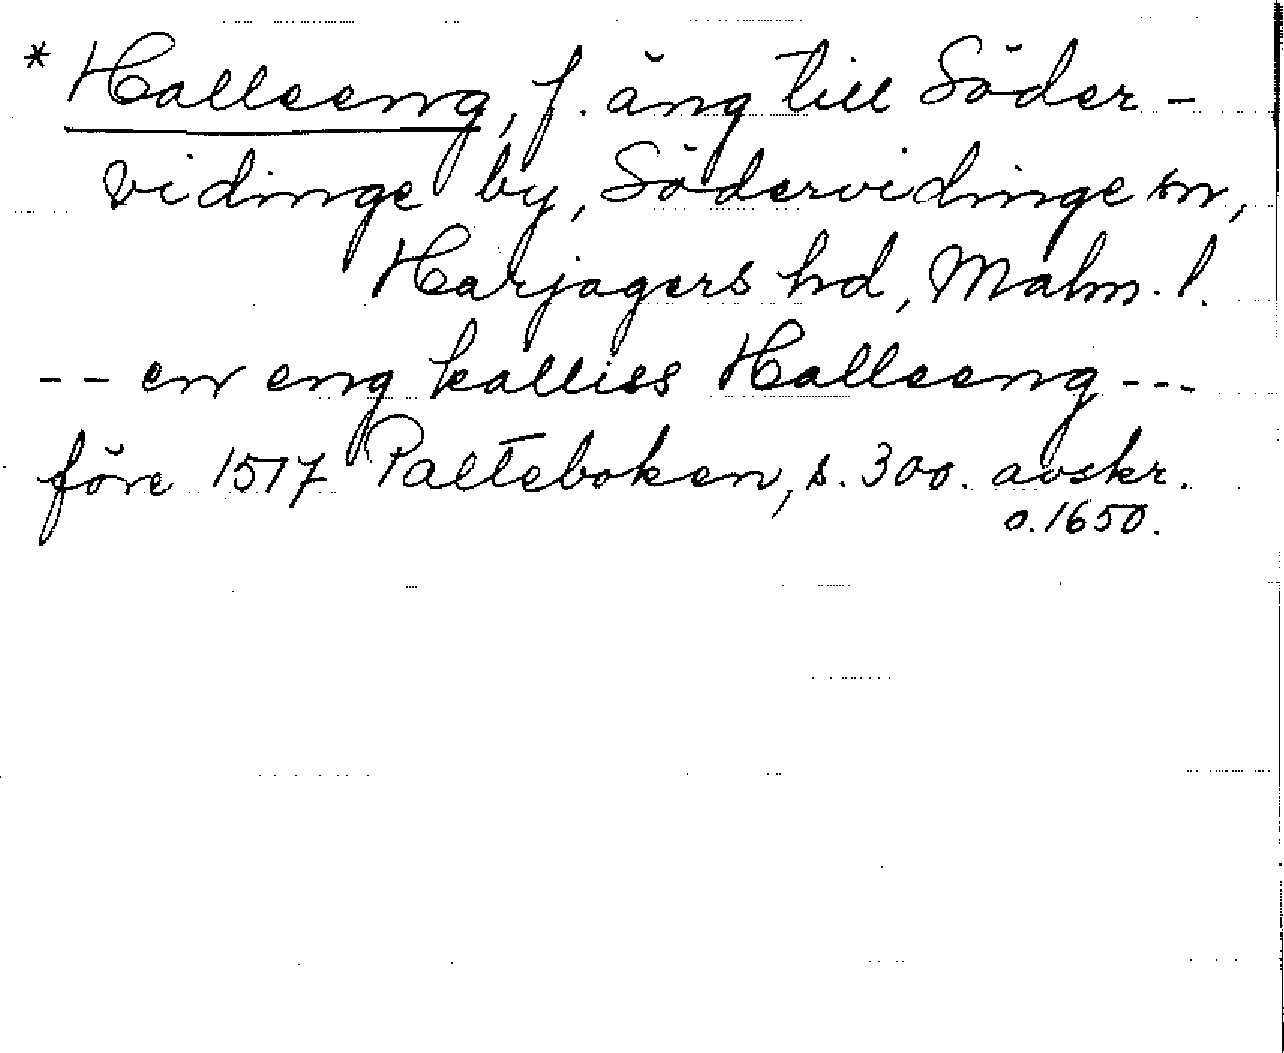 * Halleeng, f. äng till Söder-
vidinge by, Södervidinge sn,
Harjagers hd, Malm. l.
-- en eng kalliss Halleeng ---
före 1517 Palteboken, s. 300. avskr.
o. 1650.